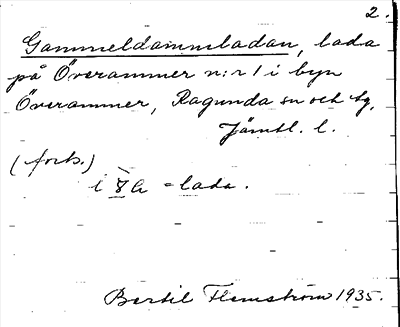 2.
Gammeldammsladan, lada
på Överammer n:r 1 i byn
Överammer, Ragunda sn och tg,
Jämtl. l.
(forts.)
= lada.
Bertil Flemström 1935.